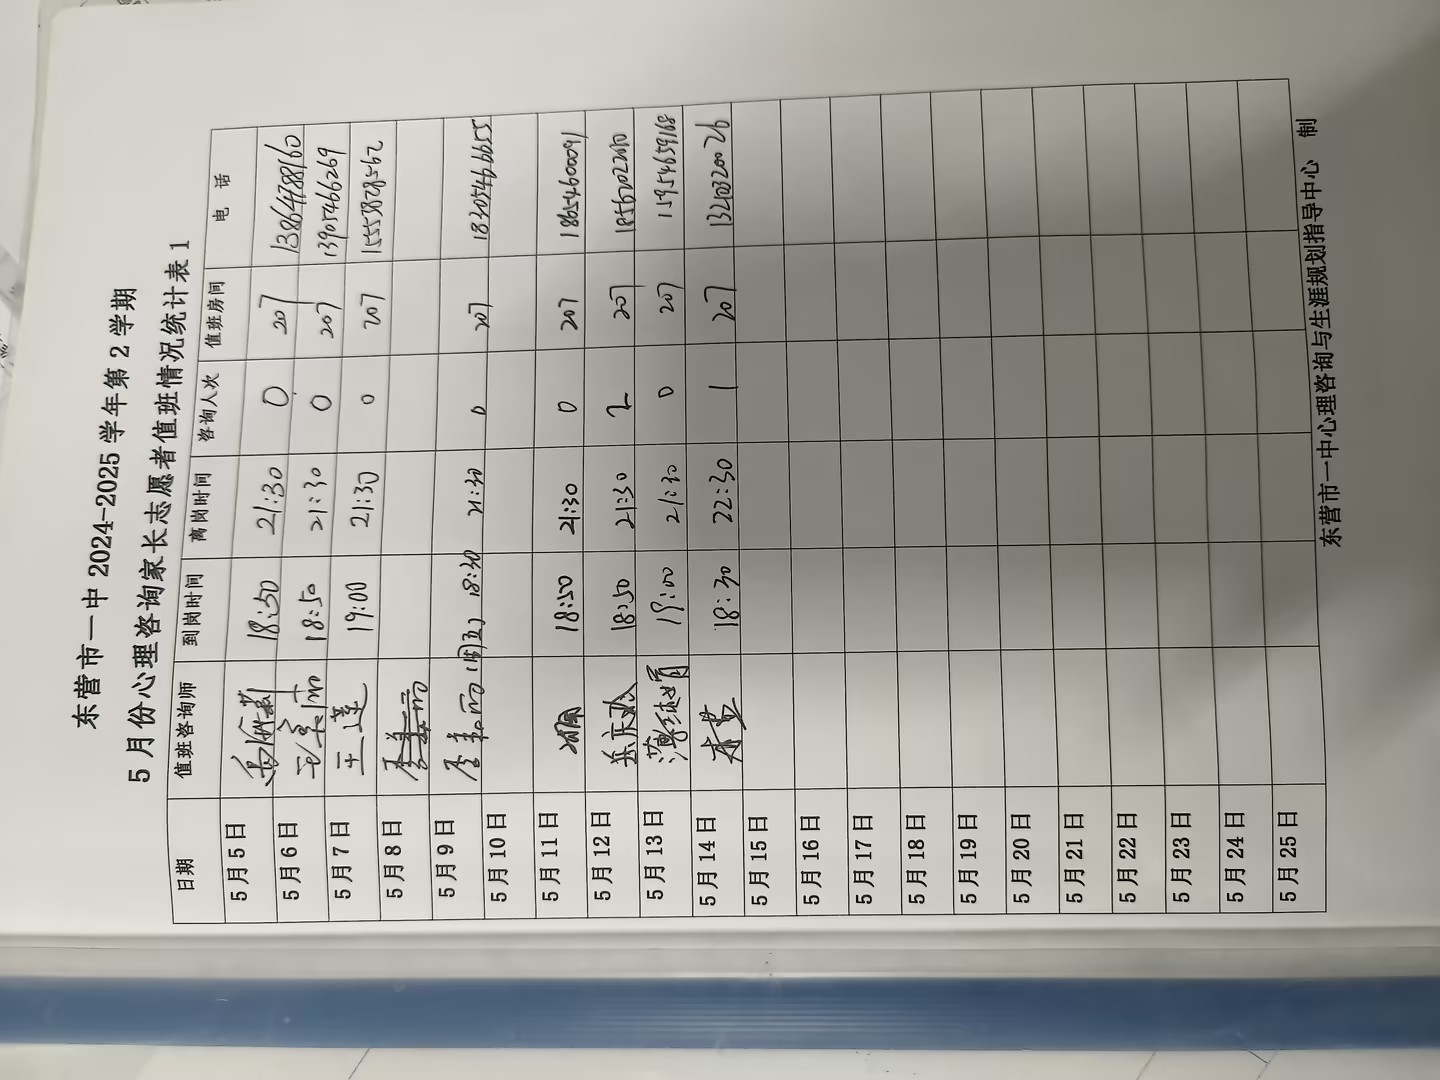 东营市一中 2024-2025 学年第 2 学期
5 月份心理咨询家长志愿者值班情况统计表 1
日期 值班咨询师 到岗时间 离岗时间 咨询人次 值班房间 电 话
5 月 5 日 18:50 21:30 0 207
5 月 6 日 18:50 21:30 0 207 13905466269
5 月 7 日 王莲 19:00 21:30 0 207 15553828562
5 月 8 日
5 月 9 日 (周五) 18:30 21:30 0 207 18305466655
5 月 10 日
5 月 11 日 18:50 21:30 0 207 18654600091
5 月 12 日 18:50 21:30 2 207
5 月 13 日 19:00 21:30 0 207 15954659168
5 月 14 日 18:30 22:30 1 207
5 月 15 日
5 月 16 日
5 月 17 日
5 月 18 日
5 月 19 日
5 月 20 日
5 月 21 日
5 月 22 日
5 月 23 日
5 月 24 日
5 月 25 日
东营市一中心理咨询与生涯规划指导中心 制